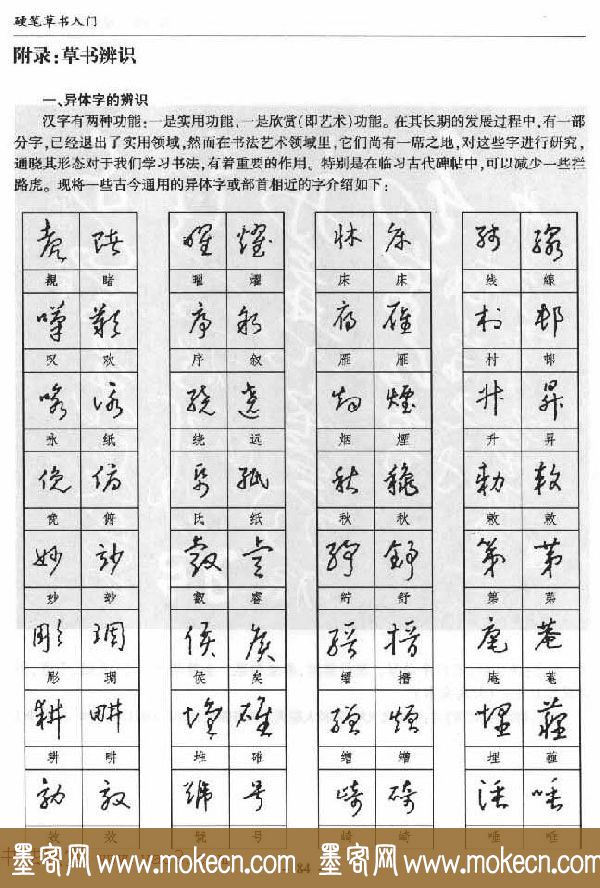 硬笔草书入门
附录:草书辨识
一、异体字的辨识
汉字有两种功能:一是实用功能,一是欣赏(即艺术)功能。在其长期的发展过程中,有一部
分字,已经退出了实用领域,然而在书法艺术领域里,它们尚有一席之地,对这些字进行研究,
通晓其形态对于我们学习书法,有着重要的作用。特别是在临习古代碑帖中,可以减少一些拦
路虎。现将一些古今通用的异体字或部首相近的字介绍如下:
睹 曜 耀 床 床 线 線
叹 欢 序 叙 雁 雁 村 邨
咏 绕 远 烟 煙 升 昇
俯 纸 秋 秋 敕 敕
妙 叡 睿 舒 第 第
彫 琱 侯 矣 缙 搢 庵 菴
耕 畊 堆 碓 埋 薶
效 效 號 号 崎 碕 唾
84
墨客网 www.mokecn.com 墨客网 www.mokecn.com